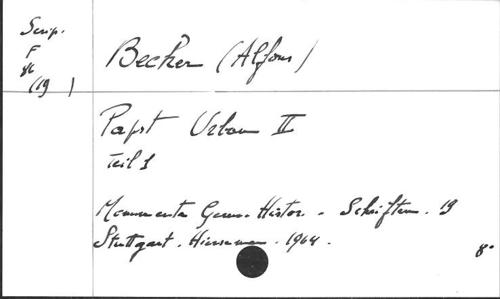 Scrip.
F
86
(19 )
Becker (Alfons)
Papst Urban II
Teil 1
Monumenta Germ. Histor. - Schriften. 19
Stuttgart. Hiersemann. 1964.
8°